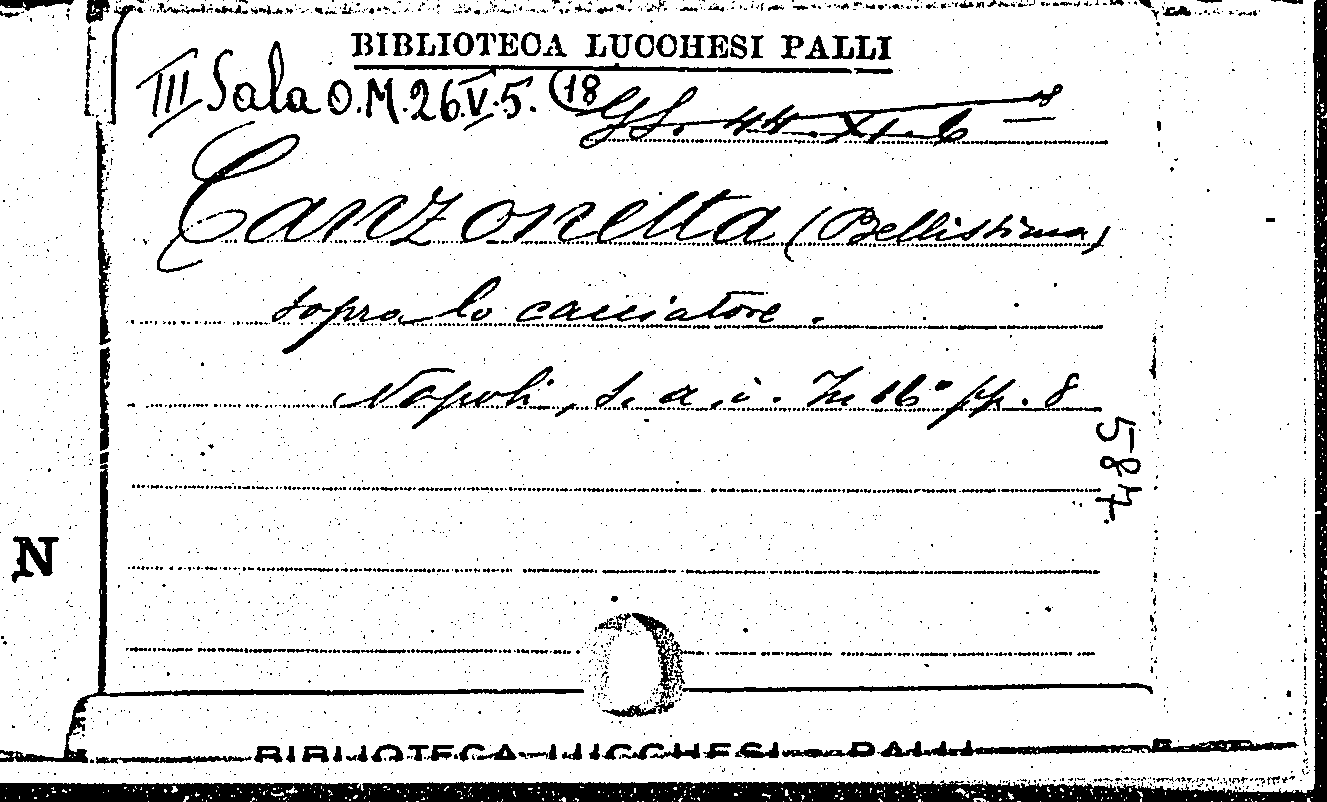 BIBLIOTECA LUCCHESI PALLI
III Sala O.M.26.V.5. (18
G.S. 44. XI. 6 18
Canzonetta (Bellissima)
sopra lo cacciatore.
Napoli, s. a. i. In 16° pp. 8
587.
N
BIBLIOTECA LUCCHESI - PALLI